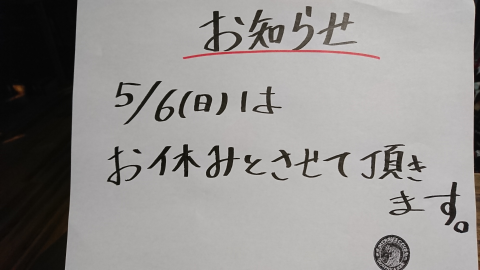 お知らせ
5/6(日)は
お休みとさせて頂き
ます。